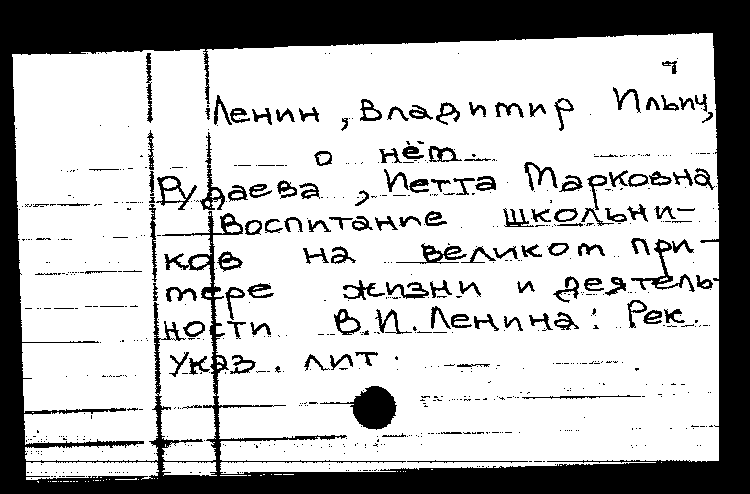 7
Ленин, Владимир Ильич,
о нём.
Рудаева, Иетта Марковна
Воспитание школьни-
ков на великом при-
мере жизни и деятель-
ности В.И.Ленина: Рек.
указ. лит.